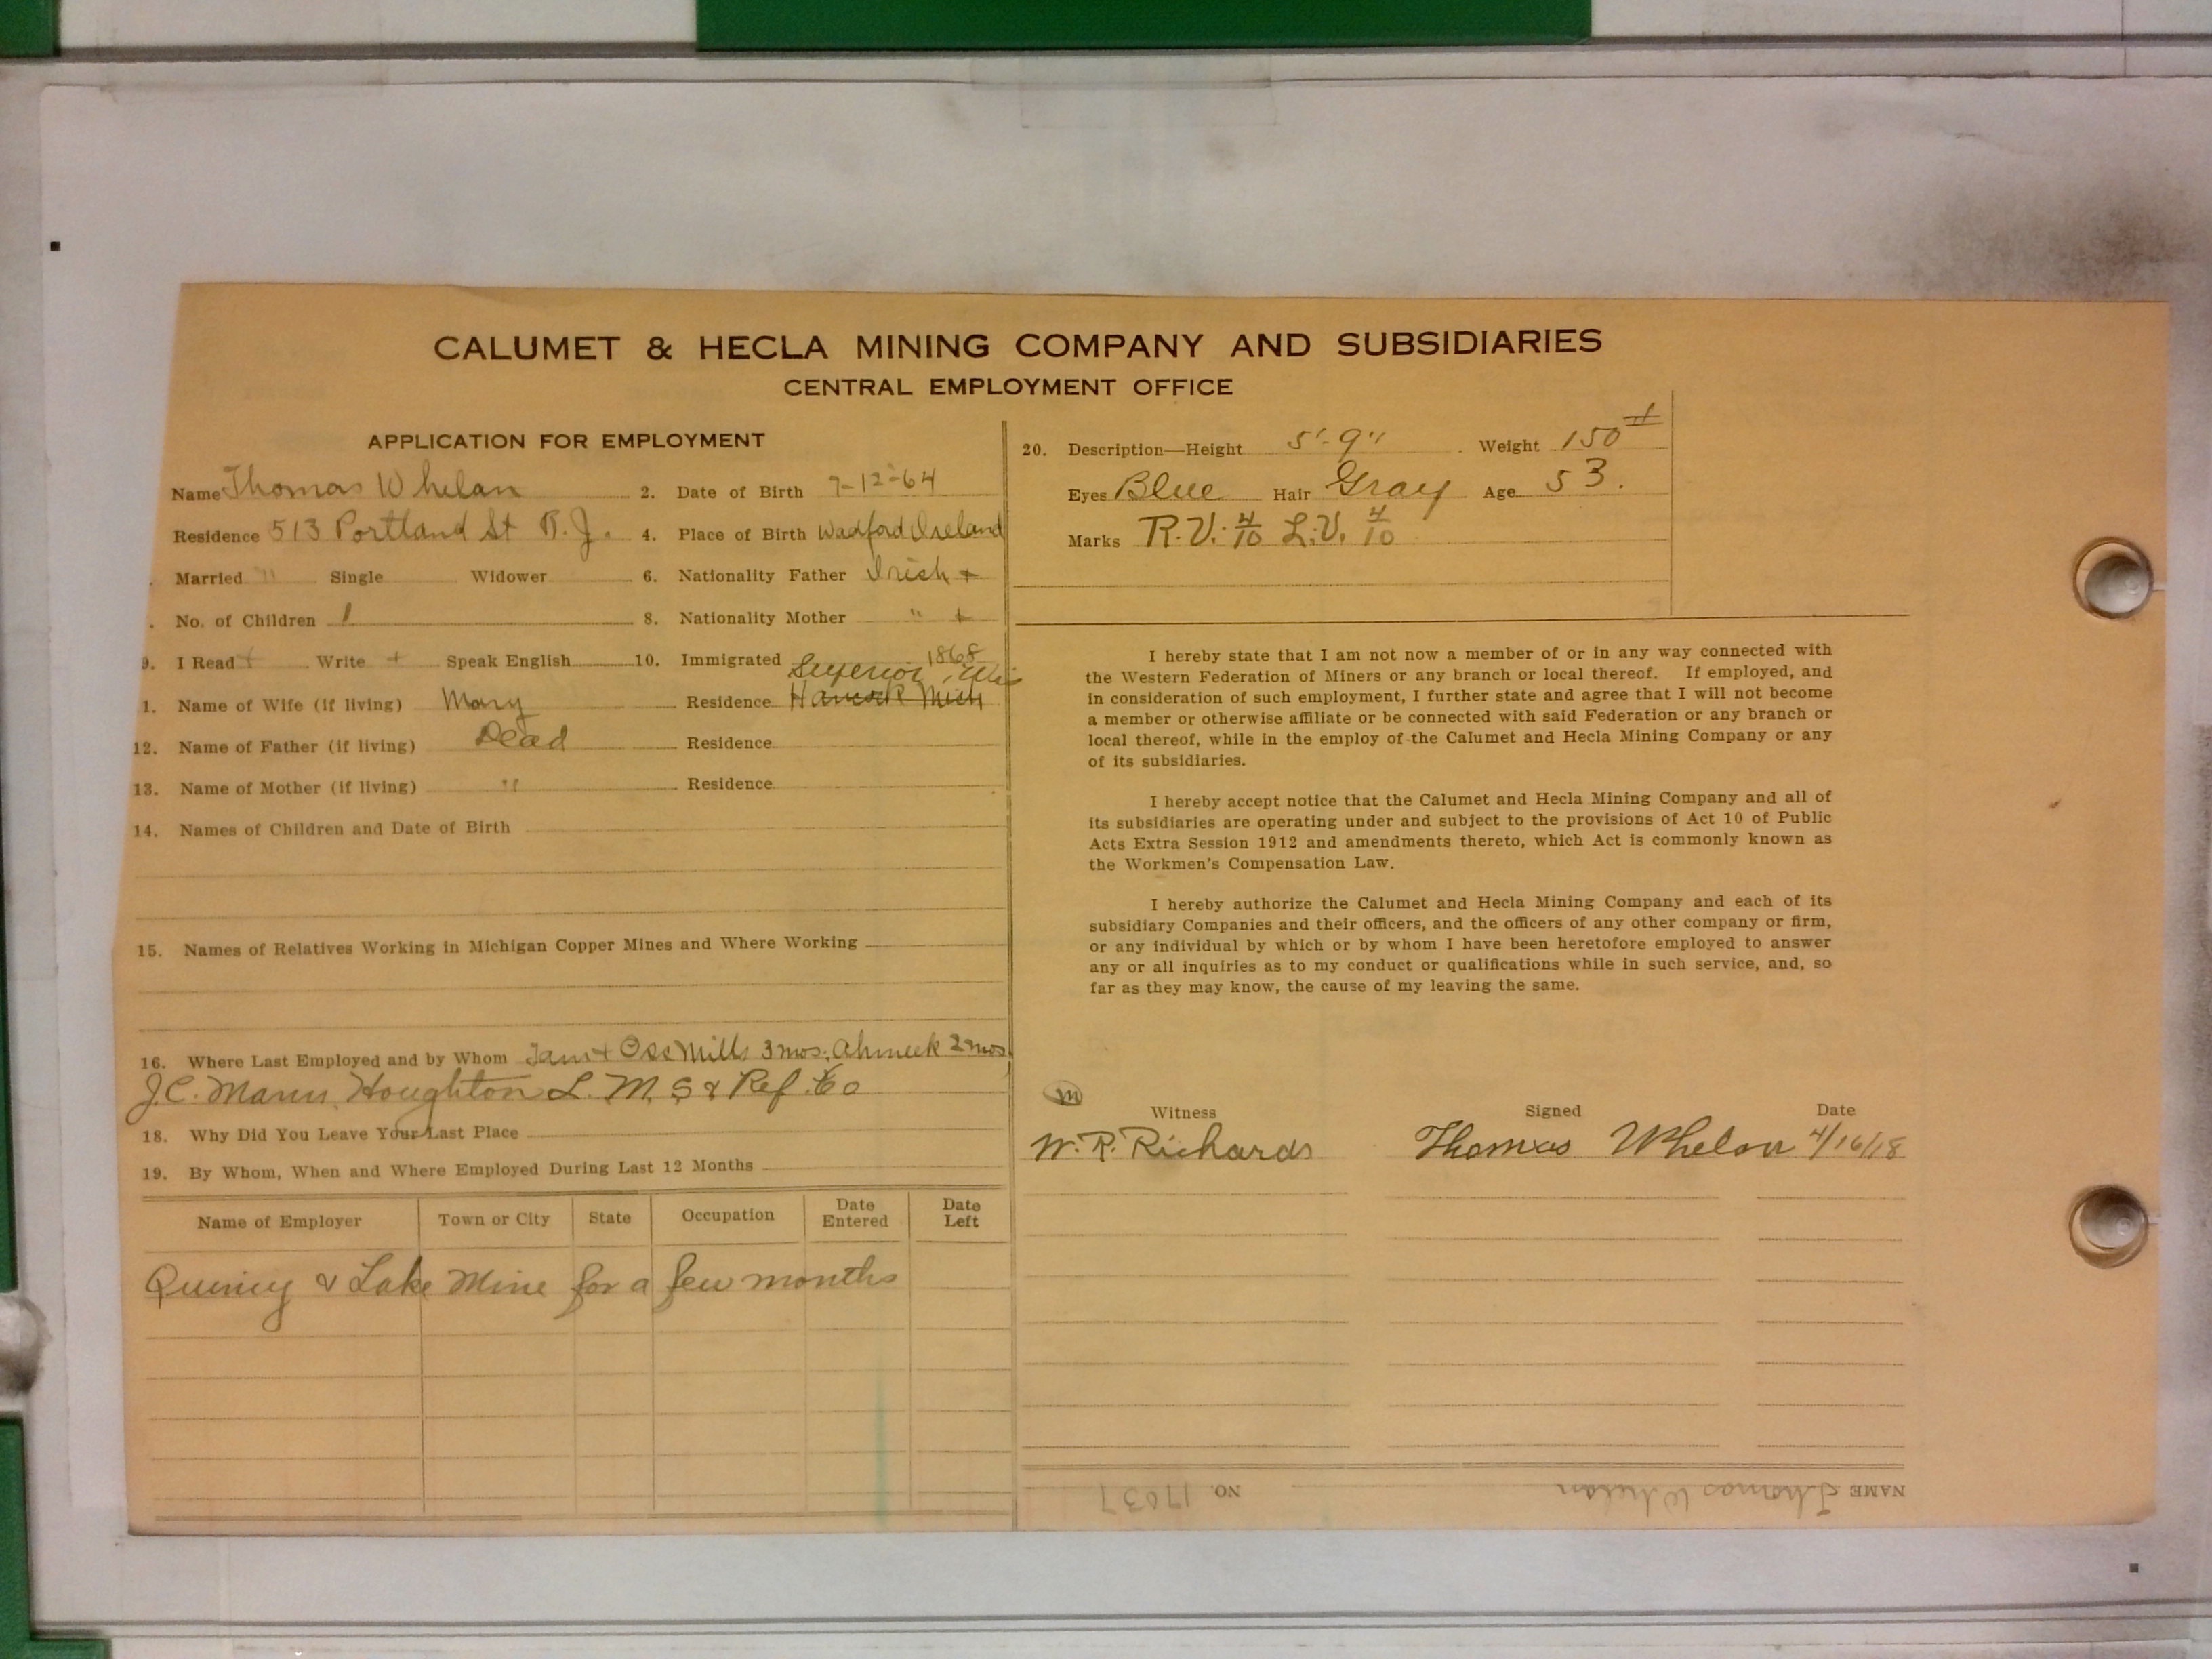 CALUMET & HECLA MINING COMPANY AND SUBSIDIARIES
CENTRAL EMPLOYMENT OFFICE
APPLICATION FOR EMPLOYMENT
Name Thomas Whelan 2. Date of Birth 7-12-64
Residence 513 Portland St R.J. 4. Place of Birth Wadford Ireland
Married " Single Widower 6. Nationality Father Irish +
No. of Children 1 8. Nationality Mother " +
9. I Read + Write + Speak English 10. Immigrated 1868
Superior, Wis
1. Name of Wife (if living) Mary Residence Hancock Mich
12. Name of Father (if living) Dead Residence
13. Name of Mother (if living) " Residence
14. Names of Children and Date of Birth
15. Names of Relatives Working in Michigan Copper Mines and Where Working
16. Where Last Employed and by Whom Mills 3 mos; Ahmeek 2 mos
J.C. Mann, Houghton L. M. S & Ref. Co
18. Why Did You Leave Your Last Place
19. By Whom, When and Where Employed During Last 12 Months
Name of Employer Town or City State Occupation Date Entered Date Left
Quincy & Lake Mine for a few months
20. Description—Height 5'-9" Weight 150 #
Eyes Blue Hair Gray Age 53.
Marks R.V. 4/10 L.V. 4/10
I hereby state that I am not now a member of or in any way connected with
the Western Federation of Miners or any branch or local thereof. If employed, and
in consideration of such employment, I further state and agree that I will not become
a member or otherwise affiliate or be connected with said Federation or any branch or
local thereof, while in the employ of the Calumet and Hecla Mining Company or any
of its subsidiaries.
I hereby accept notice that the Calumet and Hecla Mining Company and all of
its subsidiaries are operating under and subject to the provisions of Act 10 of Public
Acts Extra Session 1912 and amendments thereto, which Act is commonly known as
the Workmen's Compensation Law.
I hereby authorize the Calumet and Hecla Mining Company and each of its
subsidiary Companies and their officers, and the officers of any other company or firm,
or any individual by which or by whom I have been heretofore employed to answer
any or all inquiries as to my conduct or qualifications while in such service, and, so
far as they may know, the cause of my leaving the same.
m
Witness Signed Date
W. R. Richards Thomas Whelan 4/16/18
NAME Thomas Whelan NO. 17037